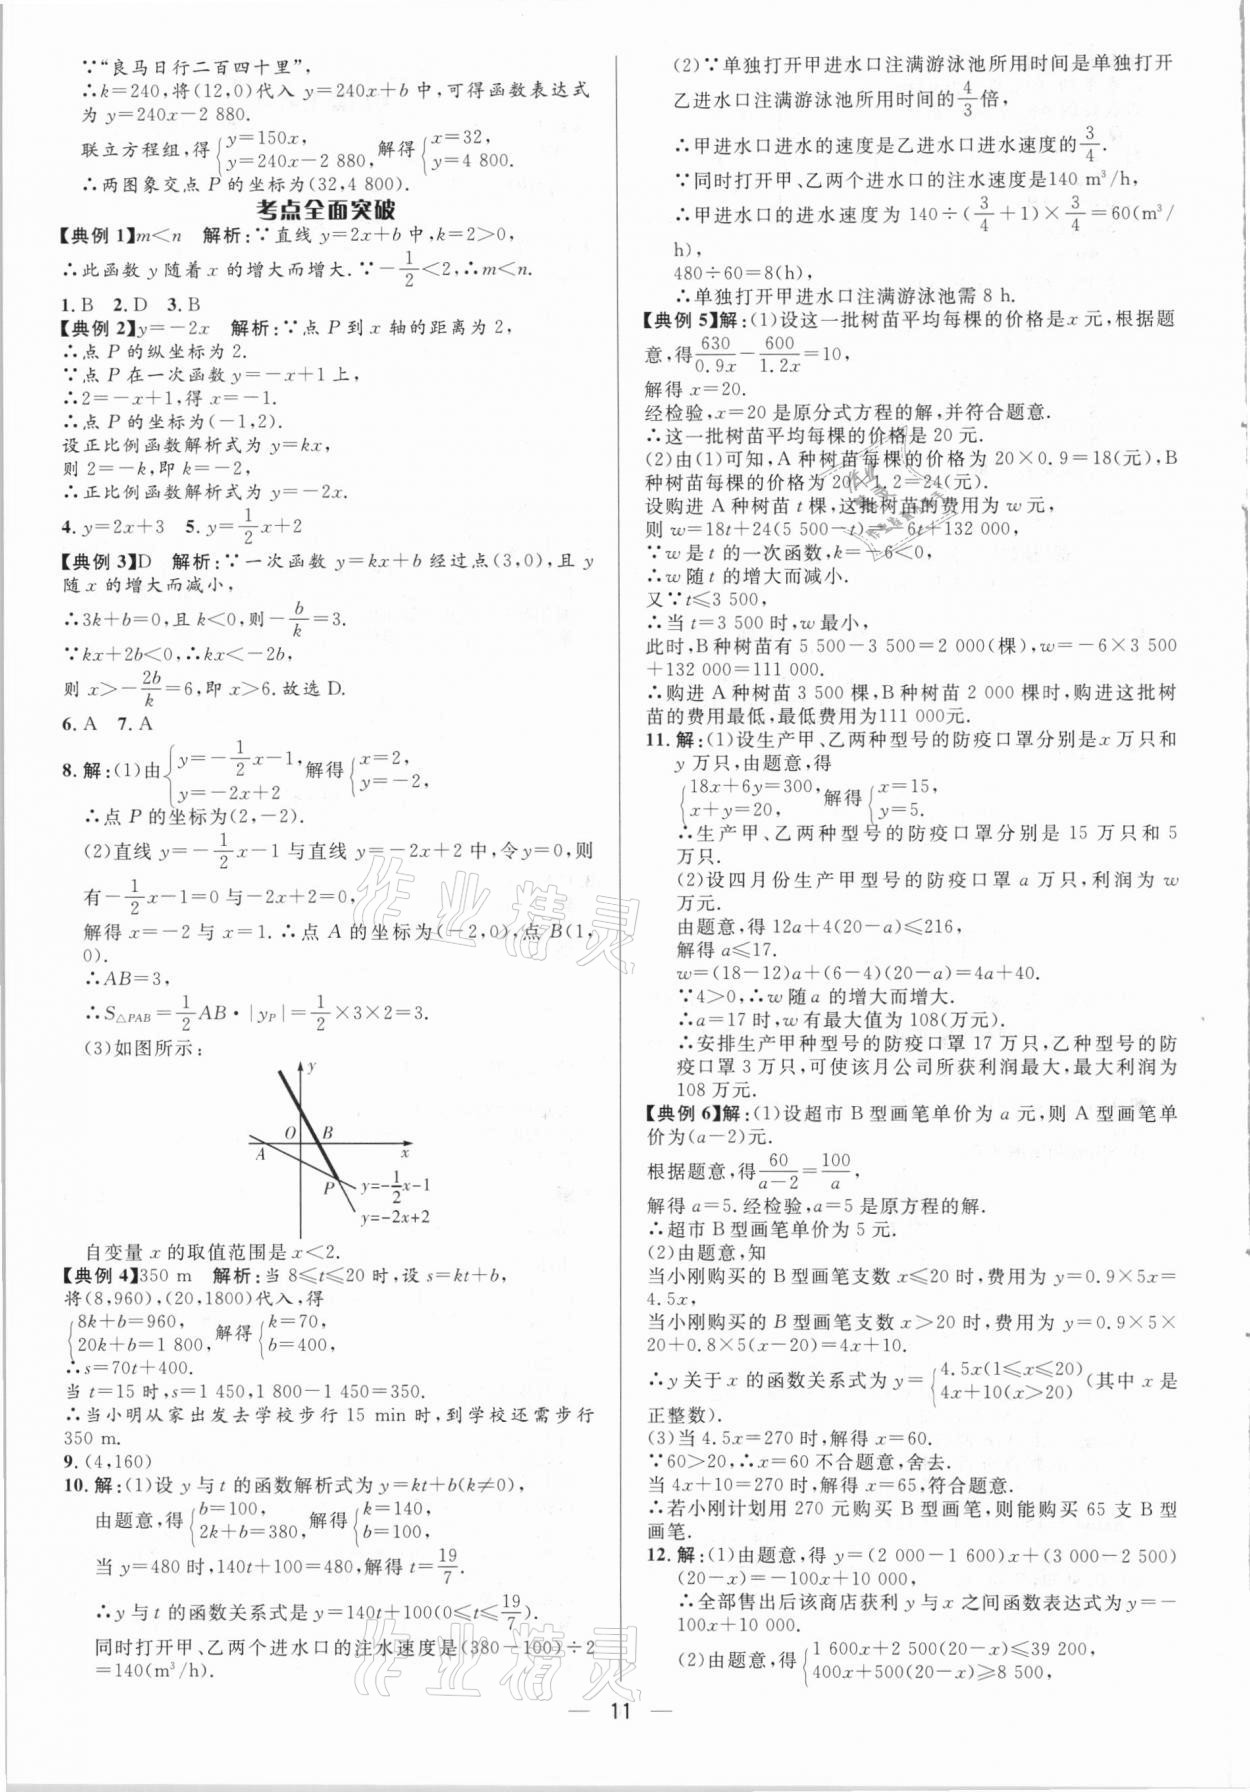 ∵“良马日行二百四十里”,
∴k=240,将(12,0)代入 y=240x+b 中,可得函数表达式
为 y=240x-2 880.
联立方程组,得{y=150x, y=240x-2 880. 解得{x=32, y=4 800.
∴两图象交点 P 的坐标为(32,4 800).
考点全面突破
【典例 1】m<n 解析:∵直线 y=2x+b 中,k=2>0,
∴此函数 y 随着 x 的增大而增大.∵-1/2<2,∴m<n.
1. B 2. D 3. B
【典例 2】y=-2x 解析:∵点 P 到 x 轴的距离为 2,
∴点 P 的纵坐标为 2.
∵点 P 在一次函数 y=-x+1 上,
∴2=-x+1,得 x=-1.
∴点 P 的坐标为(-1,2).
设正比例函数解析式为 y=kx,
则 2=-k,即 k=-2,
∴正比例函数解析式为 y=-2x.
4. y=2x+3 5. y=1/2x+2
【典例 3】D 解析:∵一次函数 y=kx+b 经过点(3,0),且 y
随 x 的增大而减小,
∴3k+b=0,且 k<0,则-b/k=3.
∵kx+2b<0,∴kx<-2b,
则 x>-2b/k=6,即 x>6.故选 D.
6. A 7. A
8. 解:(1)由{y=-1/2x-1, y=-2x+2 解得{x=2, y=-2,
∴点 P 的坐标为(2,-2).
(2)直线 y=-1/2x-1 与直线 y=-2x+2 中,令 y=0,则
有-1/2x-1=0 与-2x+2=0,
解得 x=-2 与 x=1.∴点 A 的坐标为(-2,0),点 B(1,
0).
∴AB=3,
∴S△PAB=1/2AB·|yP|=1/2×3×2=3.
(3)如图所示:
y
O B
A x
P y=-1/2x-1
y=-2x+2
自变量 x 的取值范围是 x<2.
【典例 4】350 m 解析:当 8≤t≤20 时,设 s=kt+b,
将(8,960),(20,1800)代入,得
{8k+b=960, 20k+b=1 800, 解得{k=70, b=400,
∴s=70t+400.
当 t=15 时,s=1 450,1 800-1 450=350.
∴当小明从家出发去学校步行 15 min 时,到学校还需步行
350 m.
9. (4,160)
10. 解:(1)设 y 与 t 的函数解析式为 y=kt+b(k≠0),
由题意,得{b=100, 2k+b=380, 解得{k=140, b=100,
当 y=480 时,140t+100=480,解得 t=19/7.
∴y 与 t 的函数关系式是 y=140t+100(0≤t≤19/7).
同时打开甲、乙两个进水口的注水速度是(380-100)÷2
=140(m³/h).
(2)∵单独打开甲进水口注满游泳池所用时间是单独打开
乙进水口注满游泳池所用时间的4/3倍,
∴甲进水口进水的速度是乙进水口进水速度的3/4.
∵同时打开甲、乙两个进水口的注水速度是140 m³/h,
∴甲进水口的进水速度为 140÷(3/4+1)×3/4=60(m³/
h),
480÷60=8(h),
∴单独打开甲进水口注满游泳池需 8 h.
【典例 5】解:(1)设这一批树苗平均每棵的价格是 x 元,根据题
意,得630/0.9x-600/1.2x=10,
解得 x=20.
经检验,x=20 是原分式方程的解,并符合题意.
∴这一批树苗平均每棵的价格是 20 元.
(2)由(1)可知,A 种树苗每棵的价格为 20×0.9=18(元),B
种树苗每棵的价格为 20×1.2=24(元).
设购进 A 种树苗 t 棵,这批树苗的费用为 w 元,
则 w=18t+24(5 500-t)=-6t+132 000,
∵w 是 t 的一次函数,k=-6<0,
∴w 随 t 的增大而减小.
又∵t≤3 500,
∴当 t=3 500 时,w 最小,
此时,B 种树苗有 5 500-3 500=2 000(棵),w=-6×3 500
+132 000=111 000.
∴购进 A 种树苗 3 500 棵,B 种树苗 2 000 棵时,购进这批树
苗的费用最低,最低费用为111 000元.
11. 解:(1)设生产甲、乙两种型号的防疫口罩分别是 x 万只和
y 万只,由题意,得
{18x+6y=300, x+y=20, 解得{x=15, y=5.
∴生产甲、乙两种型号的防疫口罩分别是 15 万只和 5
万只.
(2)设四月份生产甲型号的防疫口罩 a 万只,利润为 w
万元.
由题意,得 12a+4(20-a)≤216,
解得 a≤17.
w=(18-12)a+(6-4)(20-a)=4a+40.
∵4>0,∴w 随 a 的增大而增大.
∴a=17 时,w 有最大值为 108(万元).
∴安排生产甲种型号的防疫口罩 17 万只,乙种型号的防
疫口罩 3 万只,可使该月公司所获利润最大,最大利润为
108 万元.
【典例 6】解:(1)设超市 B 型画笔单价为 a 元,则 A 型画笔单
价为(a-2)元.
根据题意,得60/a-2=100/a,
解得 a=5.经检验,a=5 是原方程的解.
∴超市 B 型画笔单价为 5 元.
(2)由题意,知
当小刚购买的 B 型画笔支数 x≤20 时,费用为 y=0.9×5x=
4.5x,
当小刚购买的 B 型画笔支数 x>20 时,费用为 y=0.9×5×
20+0.8×5(x-20)=4x+10.
∴y 关于 x 的函数关系式为 y={4.5x(1≤x≤20) 4x+10(x>20) (其中 x 是
正整数).
(3)当 4.5x=270 时,解得 x=60.
∵60>20,∴x=60 不合题意,舍去.
当 4x+10=270 时,解得 x=65,符合题意.
∴若小刚计划用 270 元购买 B 型画笔,则能购买 65 支 B 型
画笔.
12. 解:(1)由题意,得 y=(2 000-1 600)x+(3 000-2 500)
(20-x)=-100x+10 000,
∴全部售出后该商店获利 y 与 x 之间函数表达式为 y=-
100x+10 000.
(2)由题意,得{1 600x+2 500(20-x)≤39 200, 400x+500(20-x)≥8 500,
作业精灵
作业精灵
— 11 —